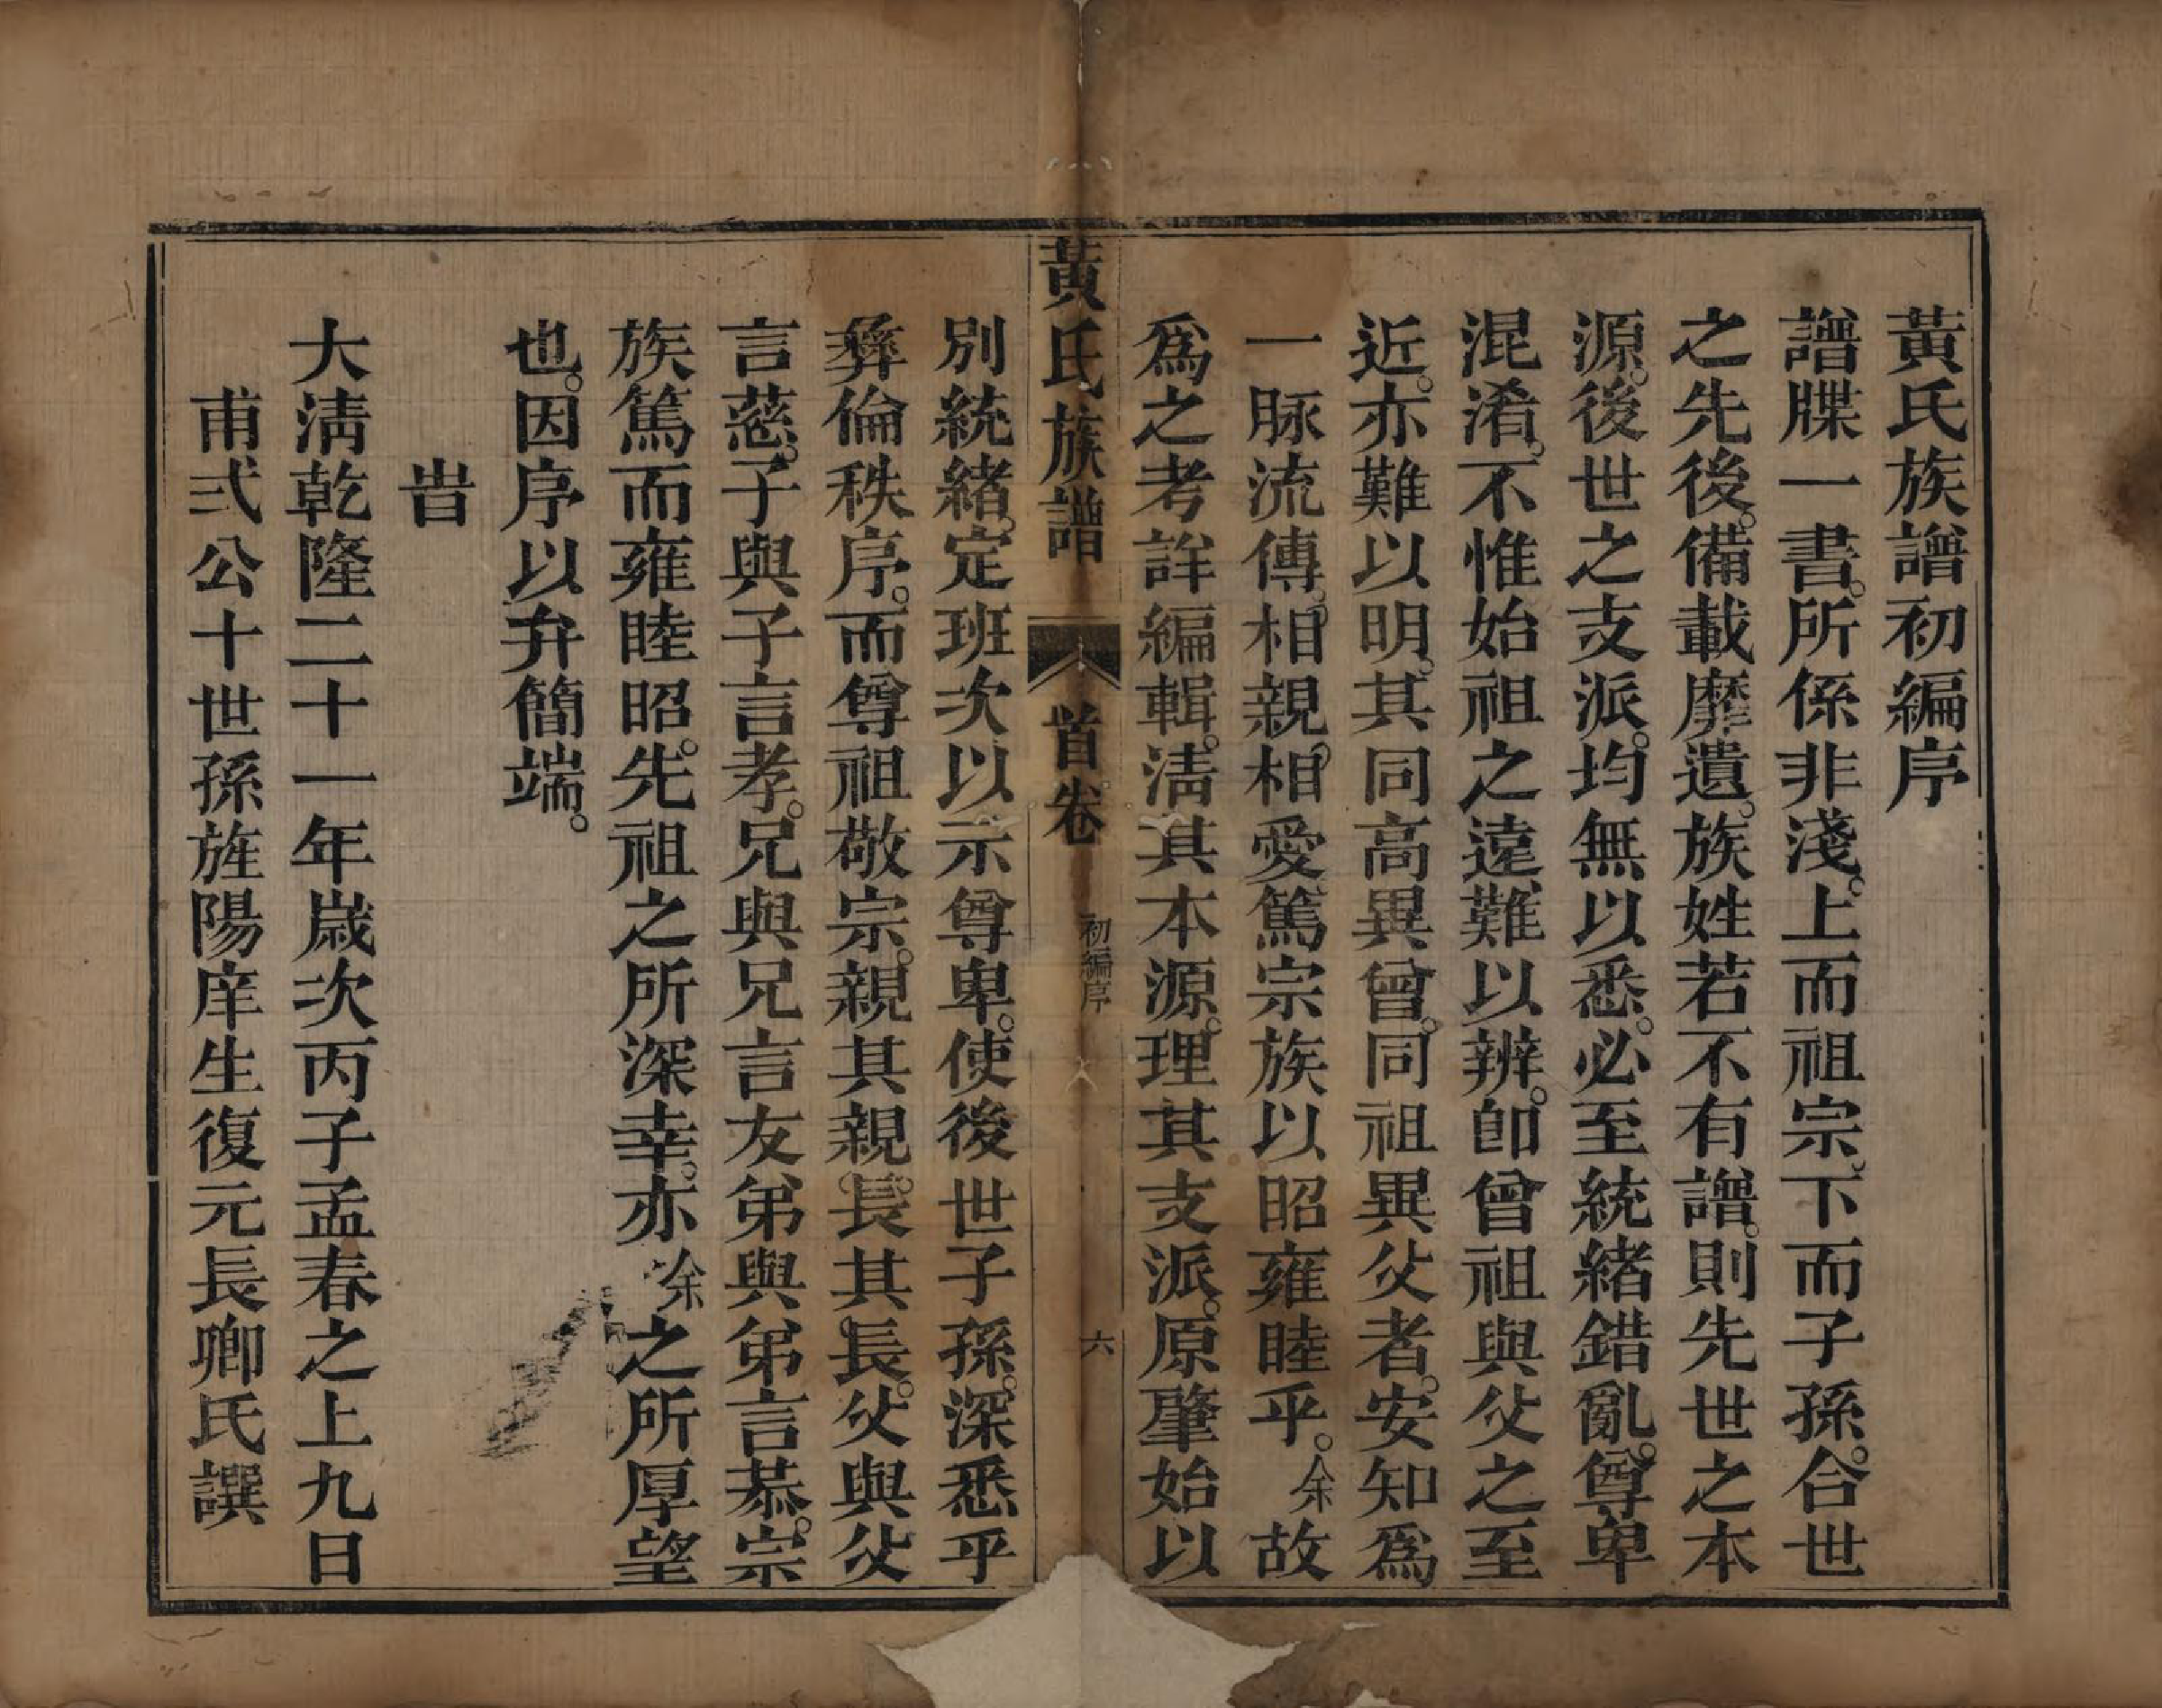 黃氏族譜初編序
譜牒一書。所係非淺。上而祖宗。下而子孫。合世
之先後。備載靡遺。族姓若不有譜。則先世之本
源。後世之支派。均無以悉。必至統緒錯亂。尊卑
混淆。不惟始祖之遠難以辨。卽曾祖與父之至
近。亦難以明。其同高異曾。同祖異父者。安知爲
一脉流傳。相親。相愛篤宗族以昭雍睦乎。余故
爲之考詳編輯。淸其本源。理其支派。原肇始以
黃氏族譜 首卷 初編序 六
別統緒。定班次以示尊卑。使後世子孫。深悉乎
彞倫秩序。而尊祖敬宗。親其親。長其長。父與父
言慈。子與子言孝。兄與兄言友弟與弟言恭。宗
族篤而雍睦昭。先祖之所深幸。亦余之所厚望
也。因序以弁簡端。
旹
大淸乾隆二十一年歲次丙子孟春之上九日
甫弍公十世孫旌陽庠生復元長卿氏譔